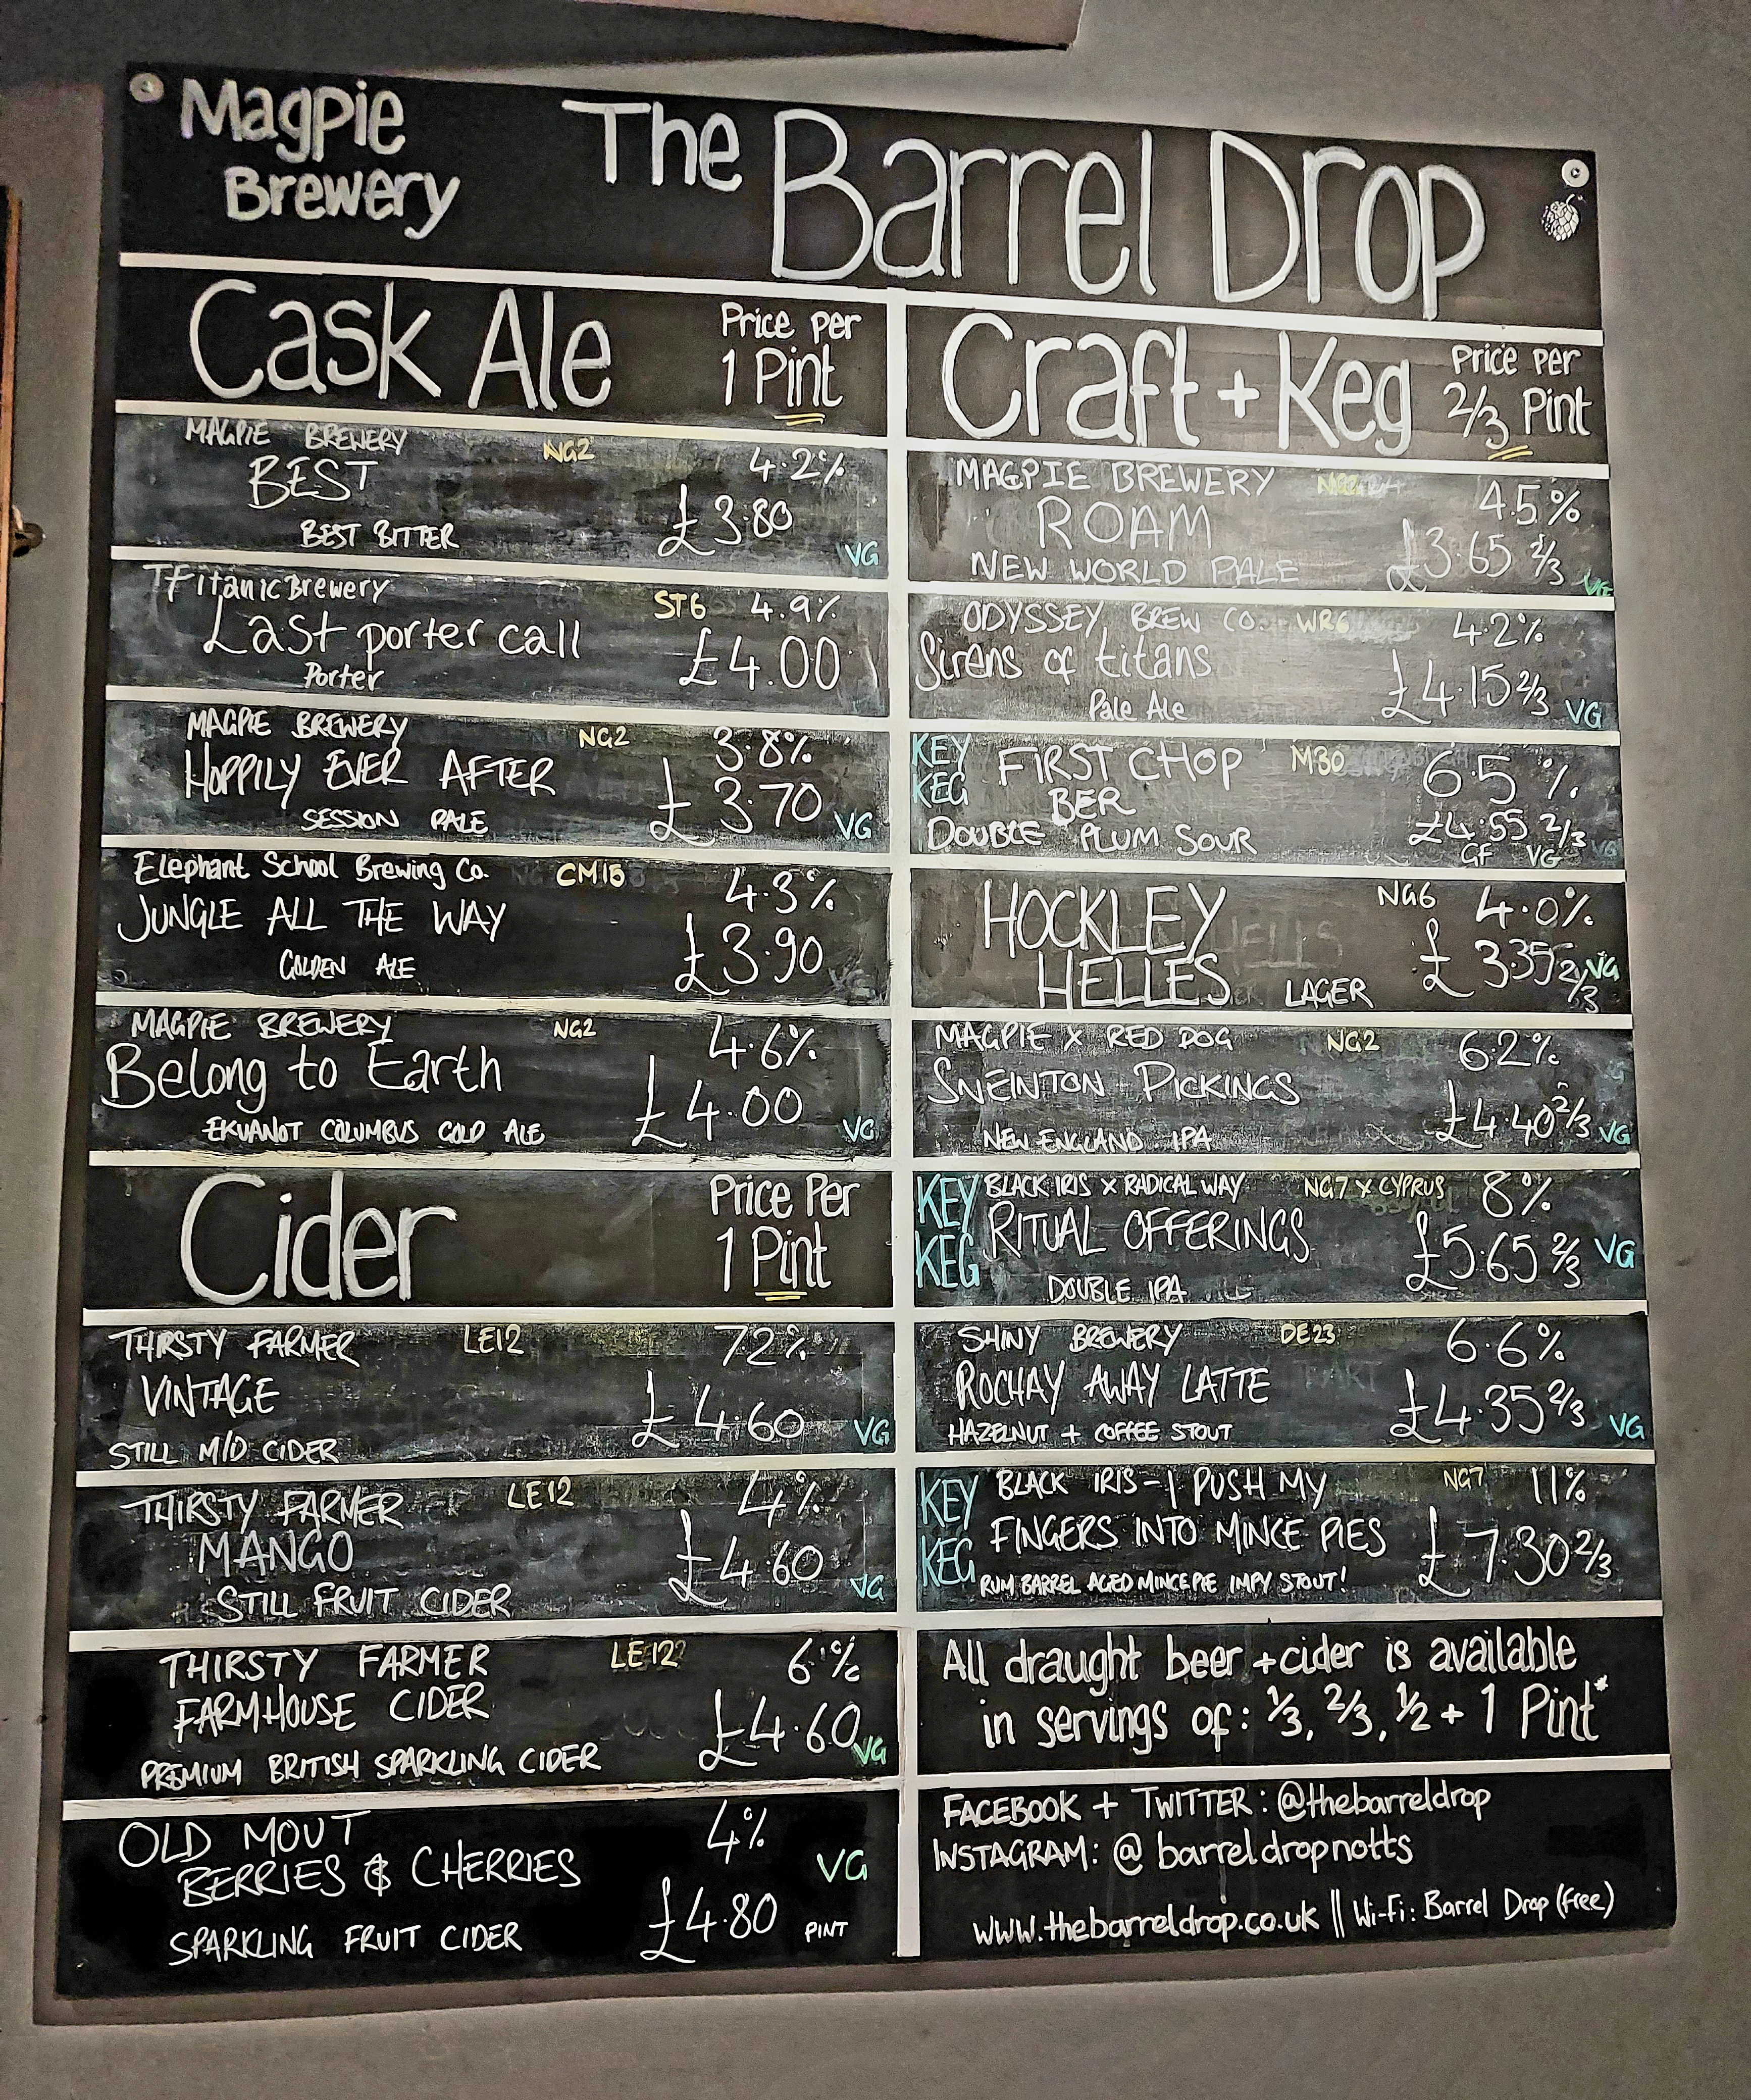 Magpie
Brewery
The Barrel Drop
Cask Ale
Price per
1 Pint
MAGPIE BREWERY NG2 4.2%
BEST £3.80
BEST BITTER VG
Titanic Brewery ST6 4.9%
Last porter call £4.00
Porter
MAGPIE BREWERY NG2 3.8%
HOPPILY EVER AFTER £3.70
SESSION PALE VG
Elephant School Brewing Co. CM15 4.3%
JUNGLE ALL THE WAY £3.90
GOLDEN ALE
MAGPIE BREWERY NG2 4.6%
Belong to Earth £4.00
EKUANOT COLUMBUS GOLD ALE VG
Cider
Price Per
1 Pint
THIRSTY FARMER LE12 7.2%
VINTAGE £4.60
STILL MID CIDER VG
THIRSTY FARMER LE12 4%
MANGO £4.60
STILL FRUIT CIDER VG
THIRSTY FARMER LE12 6%
FARMHOUSE CIDER £4.60
PREMIUM BRITISH SPARKLING CIDER VG
OLD MOUT 4%
BERRIES & CHERRIES VG
SPARKLING FRUIT CIDER £4.80 PINT
Craft + Keg
Price per
2/3 Pint
MAGPIE BREWERY NG2 4.5%
ROAM £3.65 2/3
NEW WORLD PALE VG
ODYSSEY BREW CO. WR6 4.2%
Sirens of titans £4.15 2/3
Pale Ale VG
KEY KEG
FIRST CHOP M30 6.5%
BER
DOUBLE PLUM SOUR £4.55 2/3
GF VG
HOCKLEY NG6 4.0%
HELLES LAGER £3.35 2/3 VG
MAGPIE X RED DOG NG2 6.2%
SNEINTON PICKINGS £4.40 2/3
NEW ENGLAND IPA VG
KEY KEG
BLACK IRIS X RADICAL WAY NG7 X CYPRUS 8%
RITUAL OFFERINGS £5.65 2/3 VG
DOUBLE IPA
SHINY BREWERY DE23 6.6%
ROCHAY AWAY LATTE £4.35 2/3
HAZELNUT + COFFEE STOUT VG
KEY KEG
BLACK IRIS - I PUSH MY NG7 11%
FINGERS INTO MINCE PIES £7.30 2/3
RUM BARREL AGED MINCE PIE IMPY STOUT!
All draught beer + cider is available
in servings of: 1/3, 2/3, 1/2 + 1 Pint*
FACEBOOK + TWITTER: @thebarreldrop
INSTAGRAM: @barreldropnotts
www.thebarreldrop.co.uk || Wi-Fi: Barrel Drop (free)